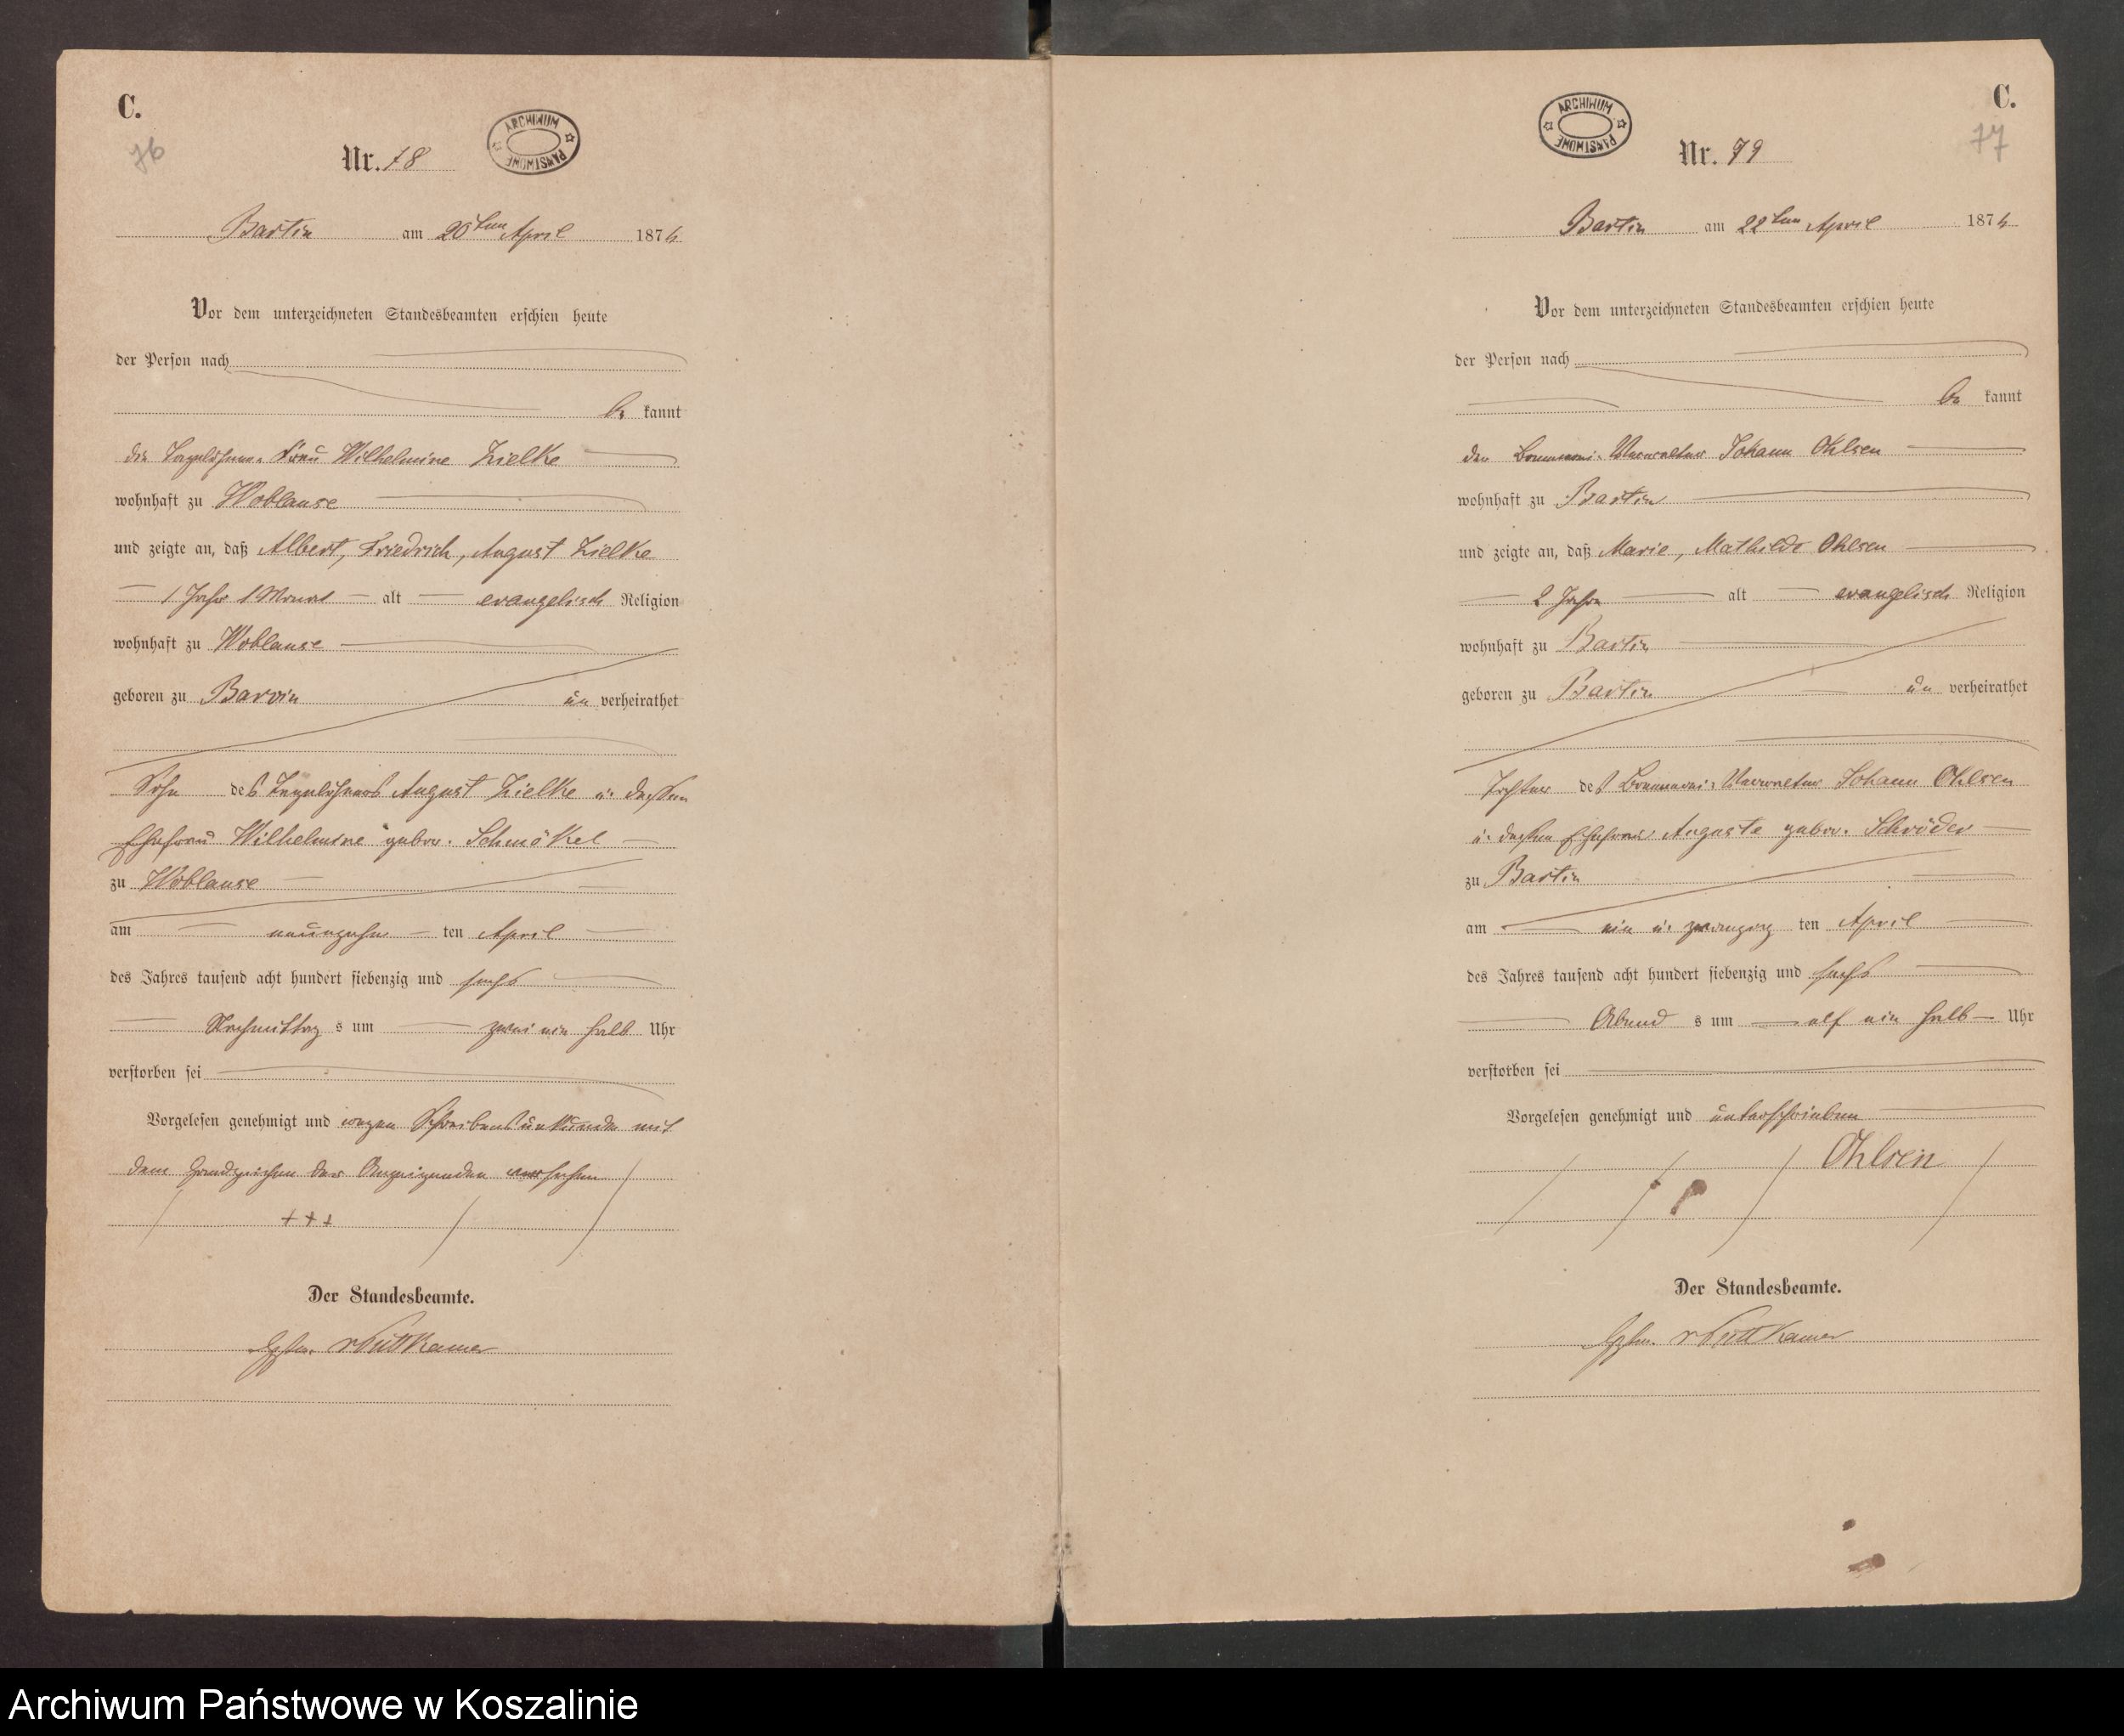 C.
76
Nr. 78
ARCHIWUM PAŃSTWOWE
Bartin am 20ten April 1876
Vor dem unterzeichneten Standesbeamten erschien heute
der Person nach
be kannt
die Tagelöhner-Frau Wilhelmine Zielke
wohnhaft zu Woblanse
und zeigte an, daß Albert, Friedrich, August Zielke
1 Jahr 1 Monat alt evangelisch Religion
wohnhaft zu Woblanse
geboren zu Barvin un verheirathet
Sohn des Tagelöhners August Zielke u. dessen
Ehefrau Wilhelmine gebor. Schmökel
zu Woblanse
am neunzehn ten April
des Jahres tausend acht hundert siebenzig und sechs
Nachmittag s um zwei ein halb Uhr
verstorben sei
Vorgelesen genehmigt und wegen Schreibensunkunde mit
dem Handzeichen der Anzeigenden versehen
+++
Der Standesbeamte.
v Puttkamer
C.
77
ARCHIWUM PAŃSTWOWE
Nr. 79
Bartin am 22ten April 1876
Vor dem unterzeichneten Standesbeamten erschien heute
der Person nach
be kannt
der Brennerei-Verwalter Johann Ohlsen
wohnhaft zu Bartin
und zeigte an, daß Marie, Mathilde Ohlsen
2 Jahre alt evangelisch Religion
wohnhaft zu Bartin
geboren zu Bartin un verheirathet
Tochter des Brennerei-Verwalter Johann Ohlsen
u. dessen Ehefrau Auguste gebor. Schröder
zu Bartin
am ein u. zwanzig ten April
des Jahres tausend acht hundert siebenzig und sechs
Abend s um elf ein halb Uhr
verstorben sei
Vorgelesen genehmigt und unterschrieben
Ohlsen
Der Standesbeamte.
v Puttkamer
Archiwum Państwowe w Koszalinie